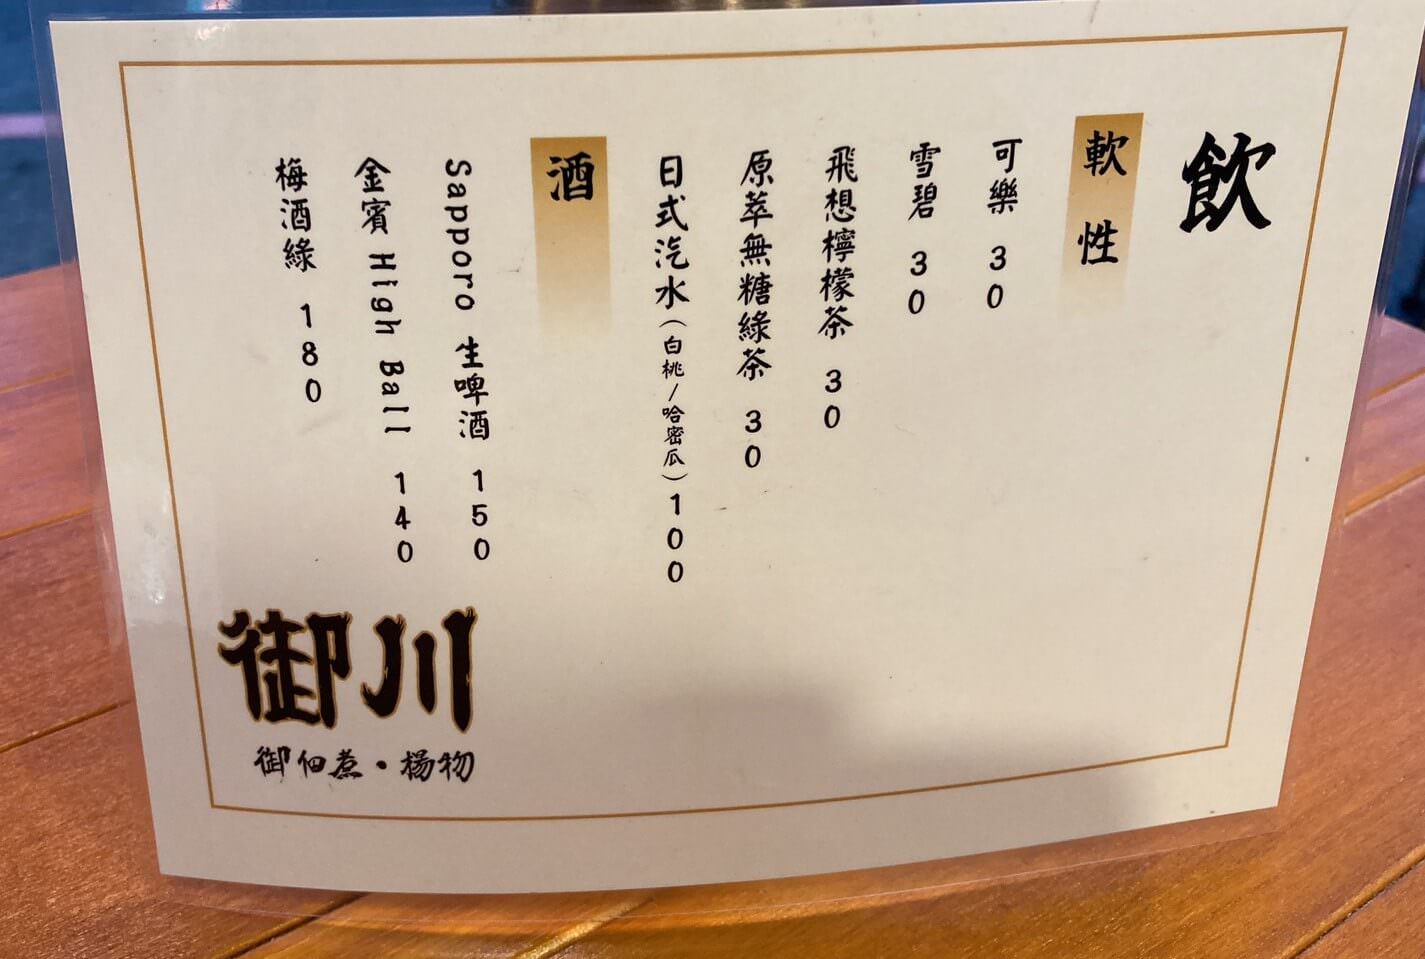 飲
軟性
可樂 30
雪碧 30
飛想檸檬茶 30
原萃無糖綠茶 30
日式汽水(白桃/哈密瓜)100
酒
Sapporo 生啤酒 150
金賓 High Ball 140
梅酒綠 180
御川
御佃煮・楊物